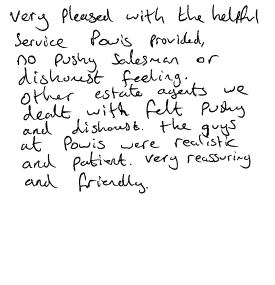 Very pleased with the helpful
service Powis provided,
no pushy salesman or
dishonest feeling.
Other estate agents we
dealt with felt pushy
and dishonest. The guys
at Powis were realistic
and patient. Very reassuring
and friendly.